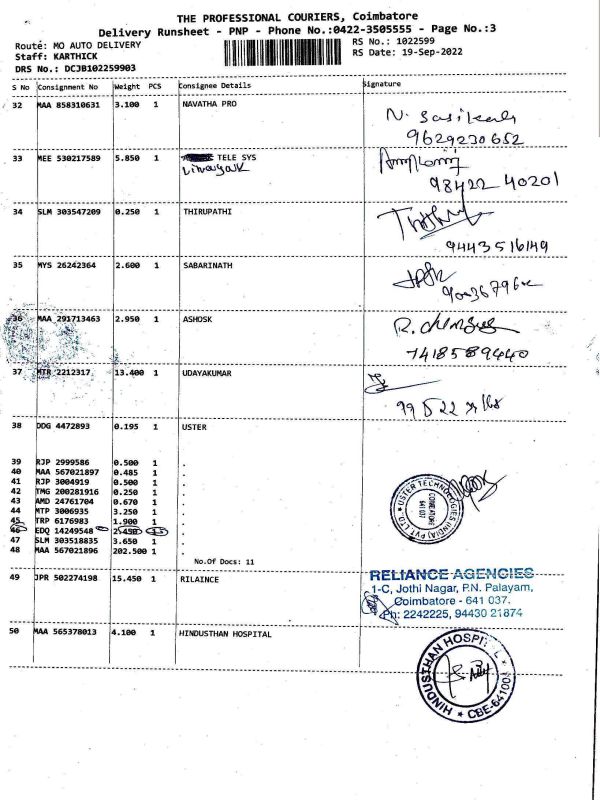 THE PROFESSIONAL COURIERS, Coimbatore
Delivery Runsheet - PNP - Phone No.:0422-3505555 - Page No.:3
Route: MO AUTO DELIVERY
RS No.: 1022599
Staff: KARTHICK
RS Date: 19-Sep-2022
DRS No.: DCJB102259903
S No Consignment No Weight PCS Consignee Details Signature
32 MAA 858310631 3.100 1 NAVATHA PRO
N. Sasikala
9629230652
33 MEE 530217589 5.850 1 TELE SYS
Vinayak
98422 40201
34 SLM 303547209 0.250 1 THIRUPATHI
9443516149
35 MYS 26242364 2.600 1 SABARINATH
36 MAA 291713463 2.950 1 ASHOSK
7418589440
37 MTR 2212317 13.400 1 UDAYAKUMAR
38 DDG 4472893 0.195 1 USTER
39 RJP 2999586 0.500 1 .
40 MAA 567021897 0.485 1 .
41 RJP 3004919 0.500 1 .
42 TMG 200281916 0.250 1 .
43 AMD 24761704 0.670 1 .
44 MTP 3006935 3.250 1 .
45 TRP 6176983 1.900 1 .
46 EDQ 14249548 2.450 .
47 SLM 303518835 3.650 1 .
48 MAA 567021896 202.500 1 .
No.Of Docs: 11
USTER TECHNOLOGIES (INDIA) PVT. LTD.
COIMBATORE
641 037
49 JPR 502274198 15.450 1 RILAINCE
RELIANCE AGENCIES
1-C, Jothi Nagar, P.N. Palayam,
Coimbatore - 641 037.
Ph: 2242225, 94430 21874
50 MAA 565378013 4.100 1 HINDUSTHAN HOSPITAL
HINDUSTHAN HOSPITAL
CBE-641004